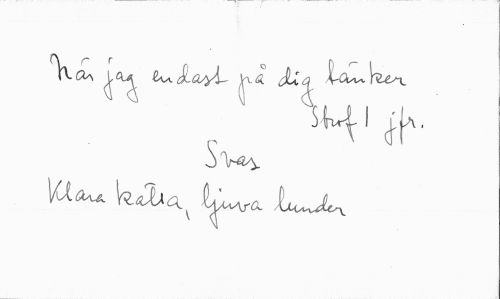 När jag endast på dig tänker
Strof 1 jfr.
Svar
Klara källa, ljuva lunder